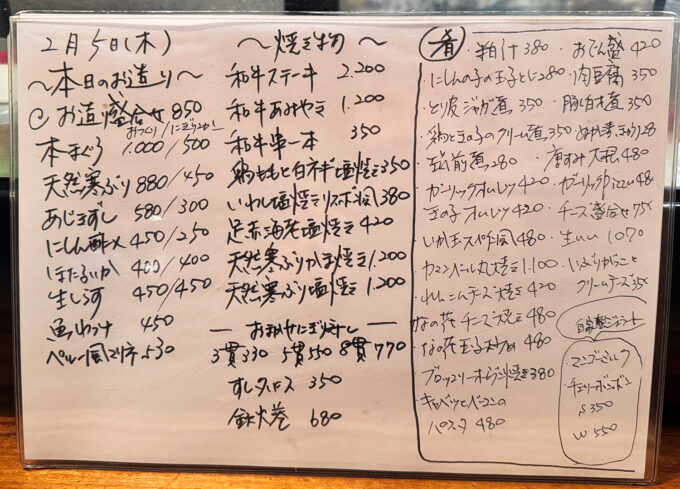 2月5日(木)
〜本日のお造り〜
お造り盛合せ 850
おつくり/にぎり2カン
本まぐろ 1.000/500
天然寒ぶり 880/450
あじきずし 580/300
にしん酢〆 450/250
ほたるいか 400/400
生しらす 450/450
魚わっけ 450
ペルー風マリネ 530
〜焼き物〜
和牛ステーキ 2.200
和牛あみやき 1.200
和牛串一本 350
鶏ももと白ネギ塩焼き 350
いわし塩焼きリスボン風 380
足赤海老塩焼き 420
天然寒ぶりかま焼き 1.200
天然寒ぶり塩焼き 1.200
おまかせにぎりずし
3貫330 5貫550 8貫770
すしタコス 350
鉄火巻 680
肴
・粕汁 380 ・おでん盛 420
・にしんの子の玉子とじ 280 ・肉豆腐 350
・とり皮ジャガ煮 350 ・豚白木煮 350
・鶏ときの子のクリーム煮 350
・筑前煮 280 ・唐すみ大根 480
・ガーリックオムレツ 420 ・ガーリックpizza 48
・きの子オムレツ 420 ・チーズ盛合せ 75
・いか玉スペイン風 480 ・生ハム 1070
・カマンベール丸焼き 1.100 ・いぶりがっこと
・れんこんチーズ焼き 420 クリームチーズ 35
・なの花チーズ焼き 480
・なの花玉子炒め 480
自家製ジェラート
・ブロッコリーオーブン焼き 380
マンゴーミルク
・キャベツとベーコンの
パスタ 480
チェリーボンボン
S 350
W 550